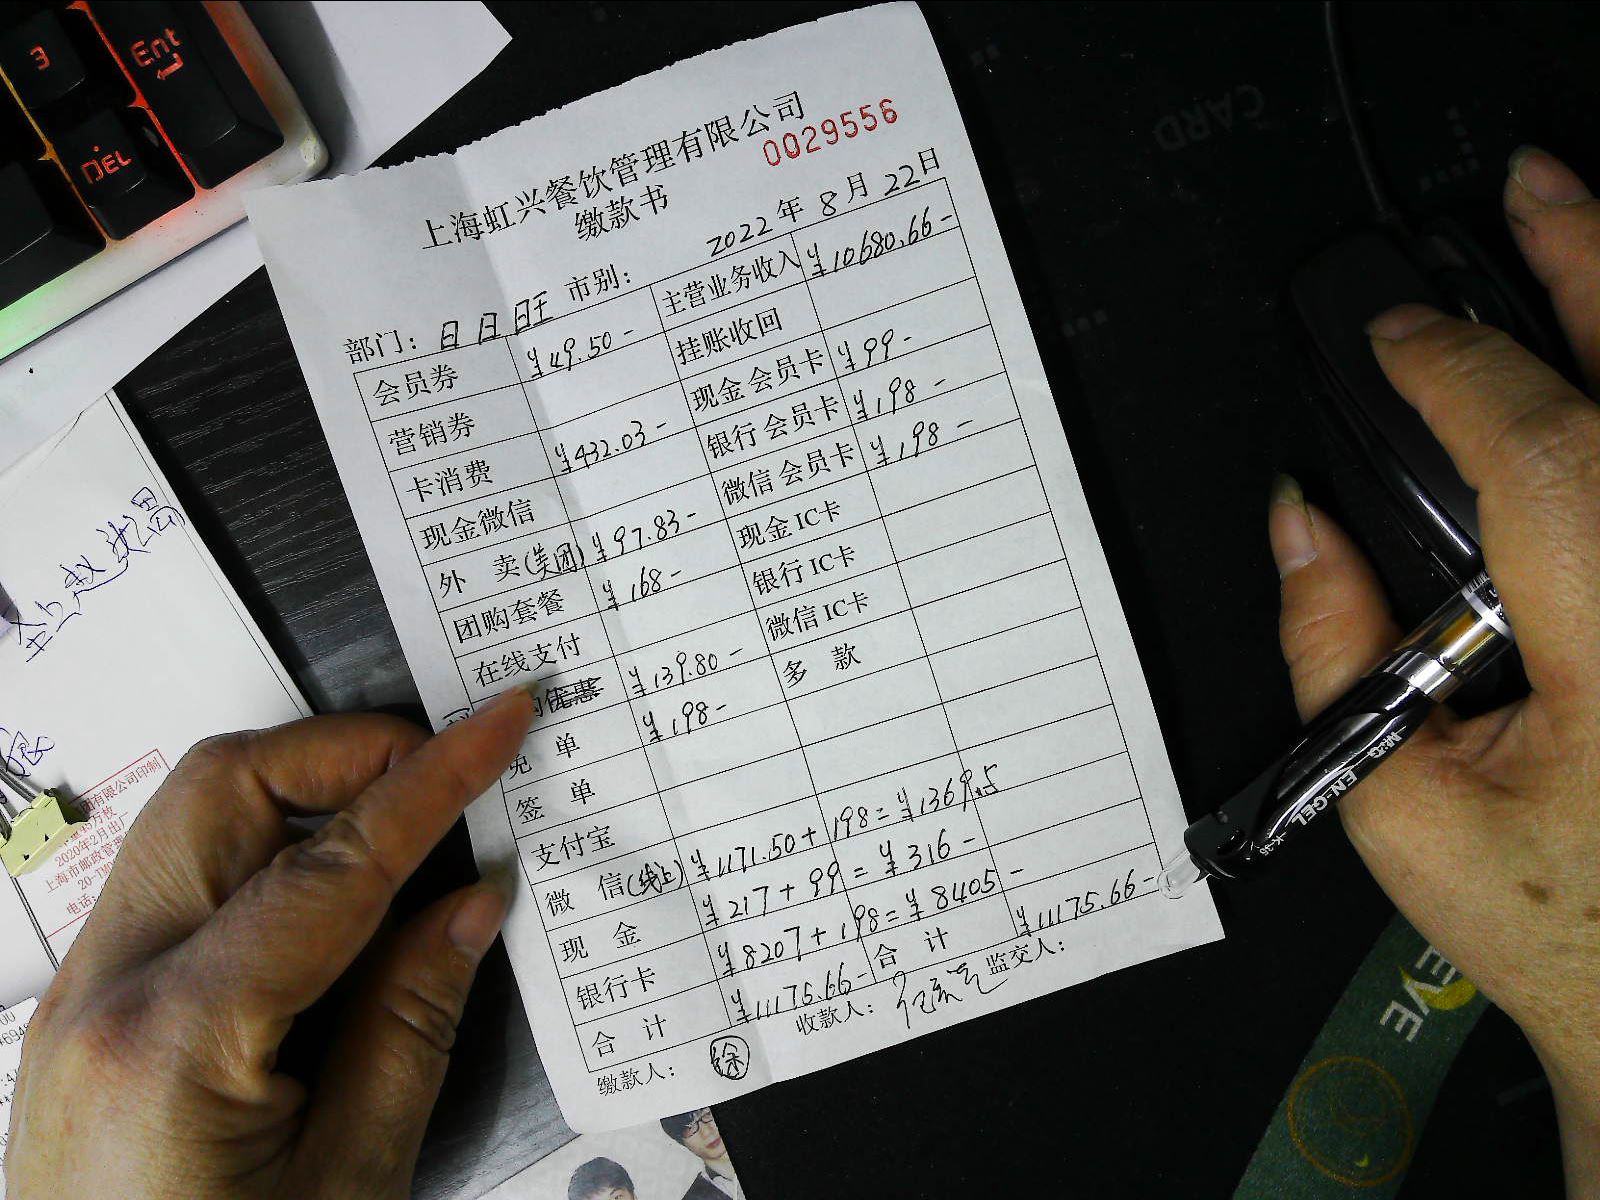 3
Ent
DEL
CARD
上海虹兴餐饮管理有限公司
0029556
缴款书
2022年 8月 22日
部门： 日日旺 市别：
会员券 ¥49.50- 主营业务收入 ¥10680.66-
营销券 挂账收回
卡消费 ¥432.03- 现金会员卡 ¥99-
现金微信 银行会员卡 ¥198-
外 卖(美团) ¥97.83- 微信会员卡 ¥198-
团购套餐 ¥168- 现金IC卡
在线支付 银行IC卡
优惠 ¥139.80- 微信IC卡
免 单 ¥198- 多 款
签 单
支付宝
微 信(线上) ¥1171.50+198=¥1369.5
现 金 ¥217+99=¥316-
银行卡 ¥8207+198=¥8405-
合 计 ¥11175.66- 合 计 ¥11175.66-
缴款人： 徐 收款人： 监交人：
有限公司印制
2020年2月出厂
上海市邮政管理
电话:
M&G EN-GEL K-35
EYE